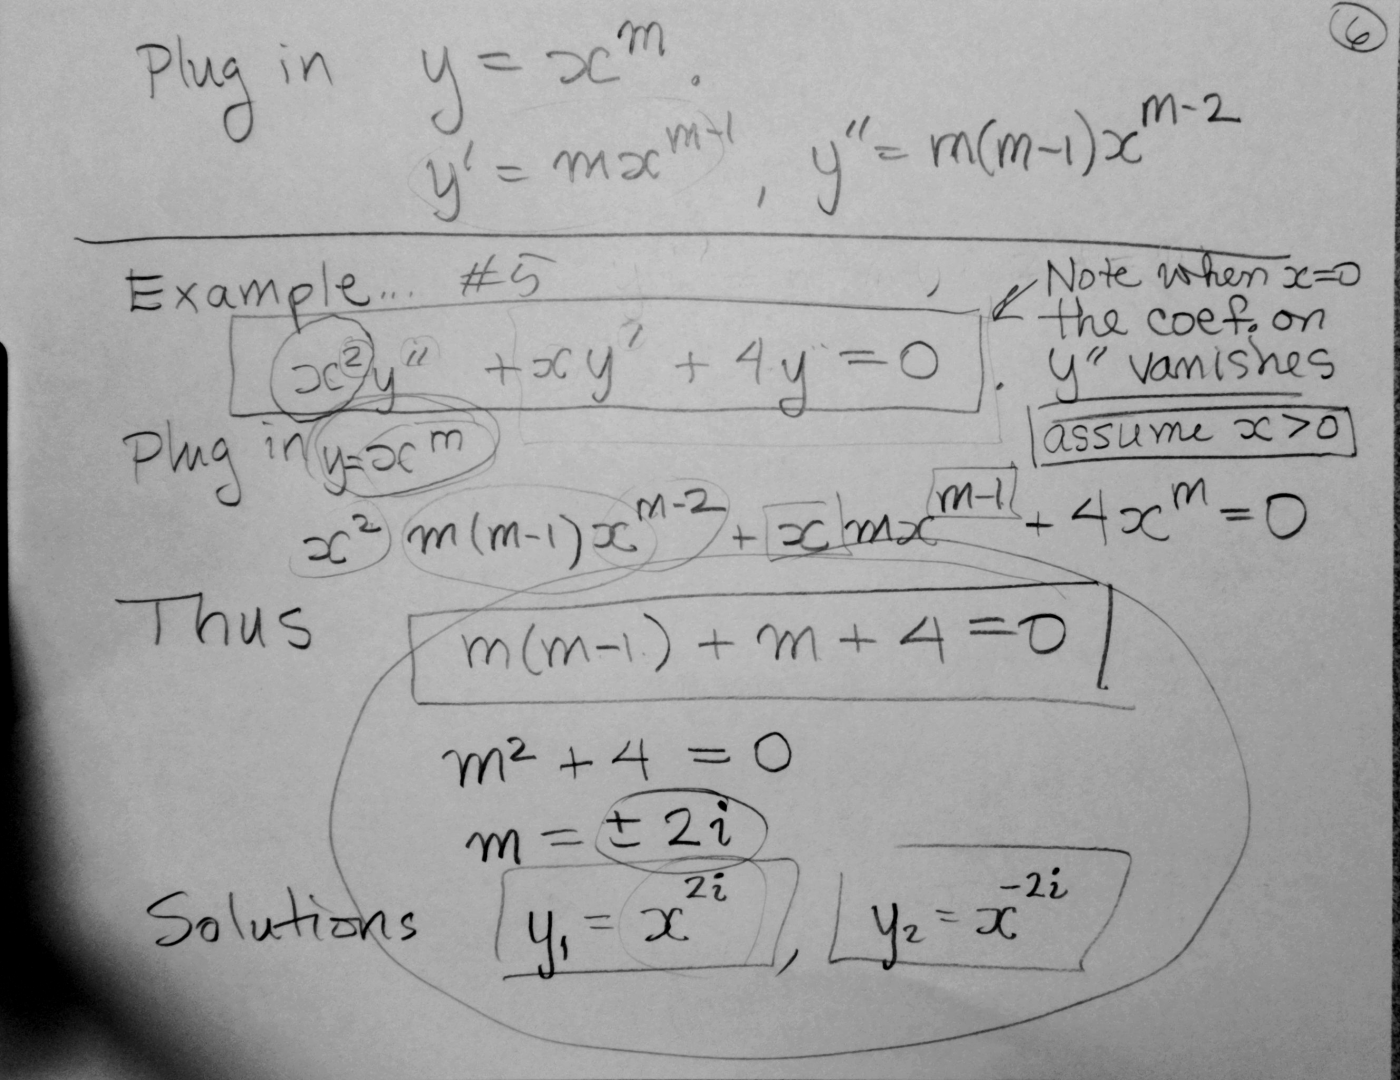 6
Plug in y = x^m.
y' = mx^{m-1}, y'' = m(m-1)x^{m-2}
Example... #5
x²y'' + xy' + 4y = 0.
Note when x=0
the coef. on
y'' vanishes
assume x>0
Plug in y=x^m
x² m(m-1)x^{m-2} + x mx^{m-1} + 4x^m = 0
Thus m(m-1) + m + 4 = 0
m² + 4 = 0
m = ± 2i
Solutions y₁ = x^{2i}, y₂ = x^{-2i}